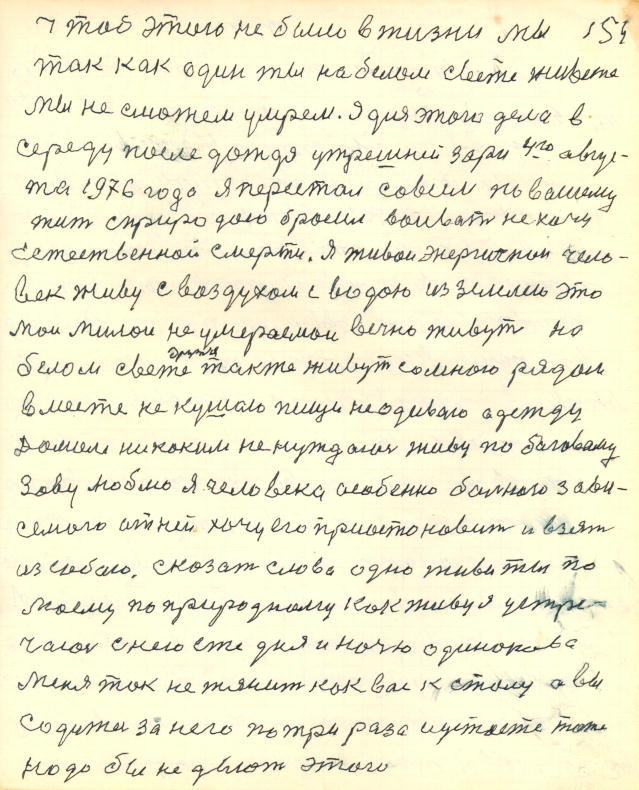 чтоб этого не было в жизни мы 154
так как один ты на белом свете живете
мы не сможем умрем. Я для этого дела в
середу после дождя утрешней зари 4го авгус-
та 1976 года Я перестал совсем по вашему
жит сприродою бросил воиват не хочу
естественной смерти. Я живои энергичнии чело-
век живу с воздухом с водою из землею это
мои милои не умераемои вечно живут на
белом свете друзья также живут сомною рядом
вместе не кушаю пищи неодиваю адежду
домом никоким не нуждаюс живу по баговому
зову люблю я человека особенно балного зави-
семого отней хочу его приостоновит и взят
из собаю. сказат слова одно живи ты по
моему по природному как живу я устре-
чаюс с нею сте дня и ночю одинокова
меня так не тянит как вас к столу а вы
содитес за него по три раза и устаете тоже
надо бы не делат этого